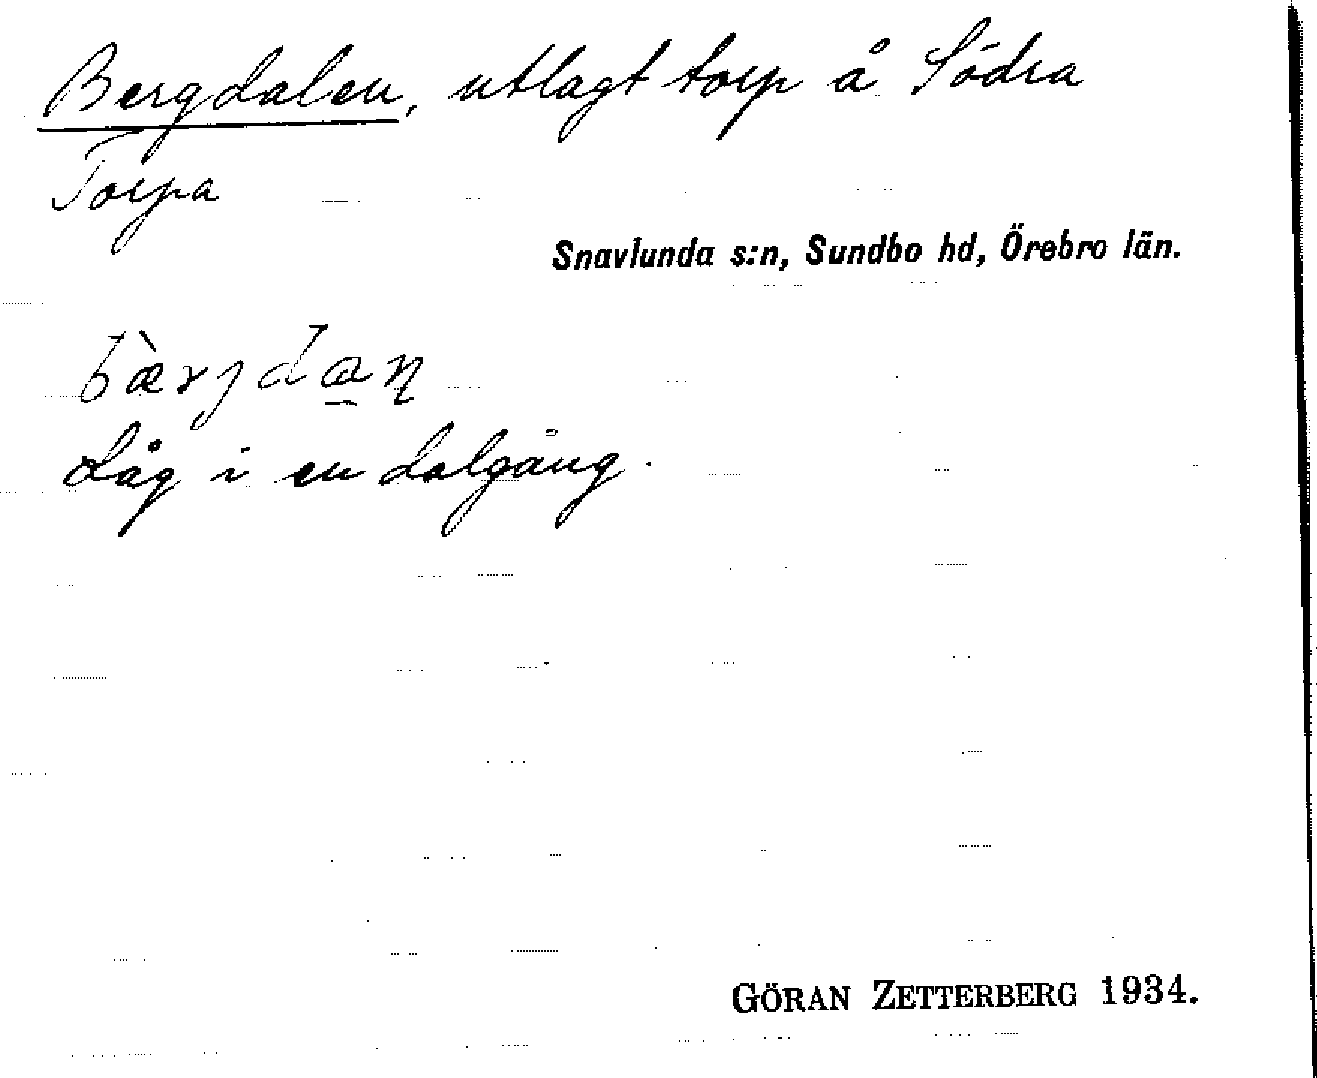 Bergdalen, utlagt torp å Södra
Torpa
Snavlunda s:n, Sundbo hd, Örebro län.
bæ̀rjdan
Låg i en dalgång.
GÖRAN ZETTERBERG 1934.